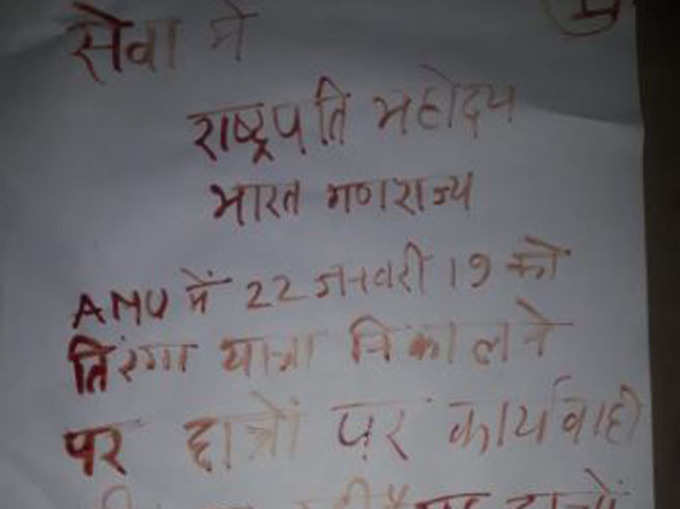 सेवा में
राष्ट्रपति महोदय
भारत गणराज्य
AMU में 22 जनवरी 19 को
तिरंगा यात्रा निकालने
पर छात्रों पर कार्यवाही
छात्रों